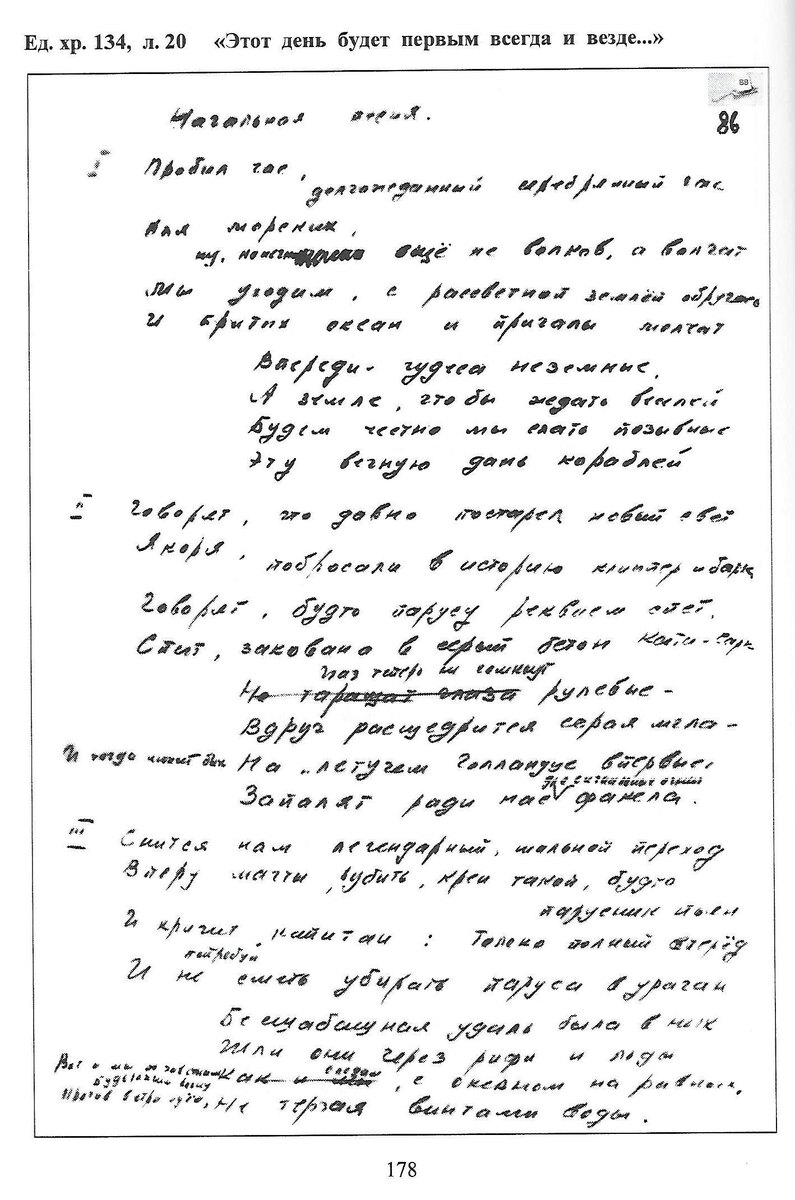 Ед. хр. 134, л. 20 «Этот день будет первым всегда и везде...»
88
86
Начальная песня.
I Пробил час,
долгожданный серебрянный час
Для моряков,
ну, пожалуй ещё не волков, а волчат
Мы уходим, с рассветной землёй обручась
И притих океан и причалы молчат
Впереди - чудеса неземные,
А земле, чтобы ждать веселей
Будем честно мы слать позывные
Эту вечную дань кораблей
II Говорят, что давно постарел новый свет
Якоря,
побросали в историю клиппер и барк
Говорят, будто парусу реквием спет.
Спит, закована в серый бетон Кати-Сарк
Глаз теперь не сомкнут
Не таращат глаза рулевые -
Вдруг расщедрится серая мгла -
И тогда может быть На „летучем Голландце впервые
огни
Запалят ради нас факела.
III Снится нам легендарный, шальной переход
Впору мачты рубить, крен такой, будто
парусник пьян
И кричит капитан : Только полный вперёд
потребуй
И не сметь убирать паруса в ураган
Бесшабашная удаль была в них
Шли они через рифы и льды
Вот и мы
следом
Как и мы, с океаном на равных,
Против ветра
Не терзая винтами воды.
178